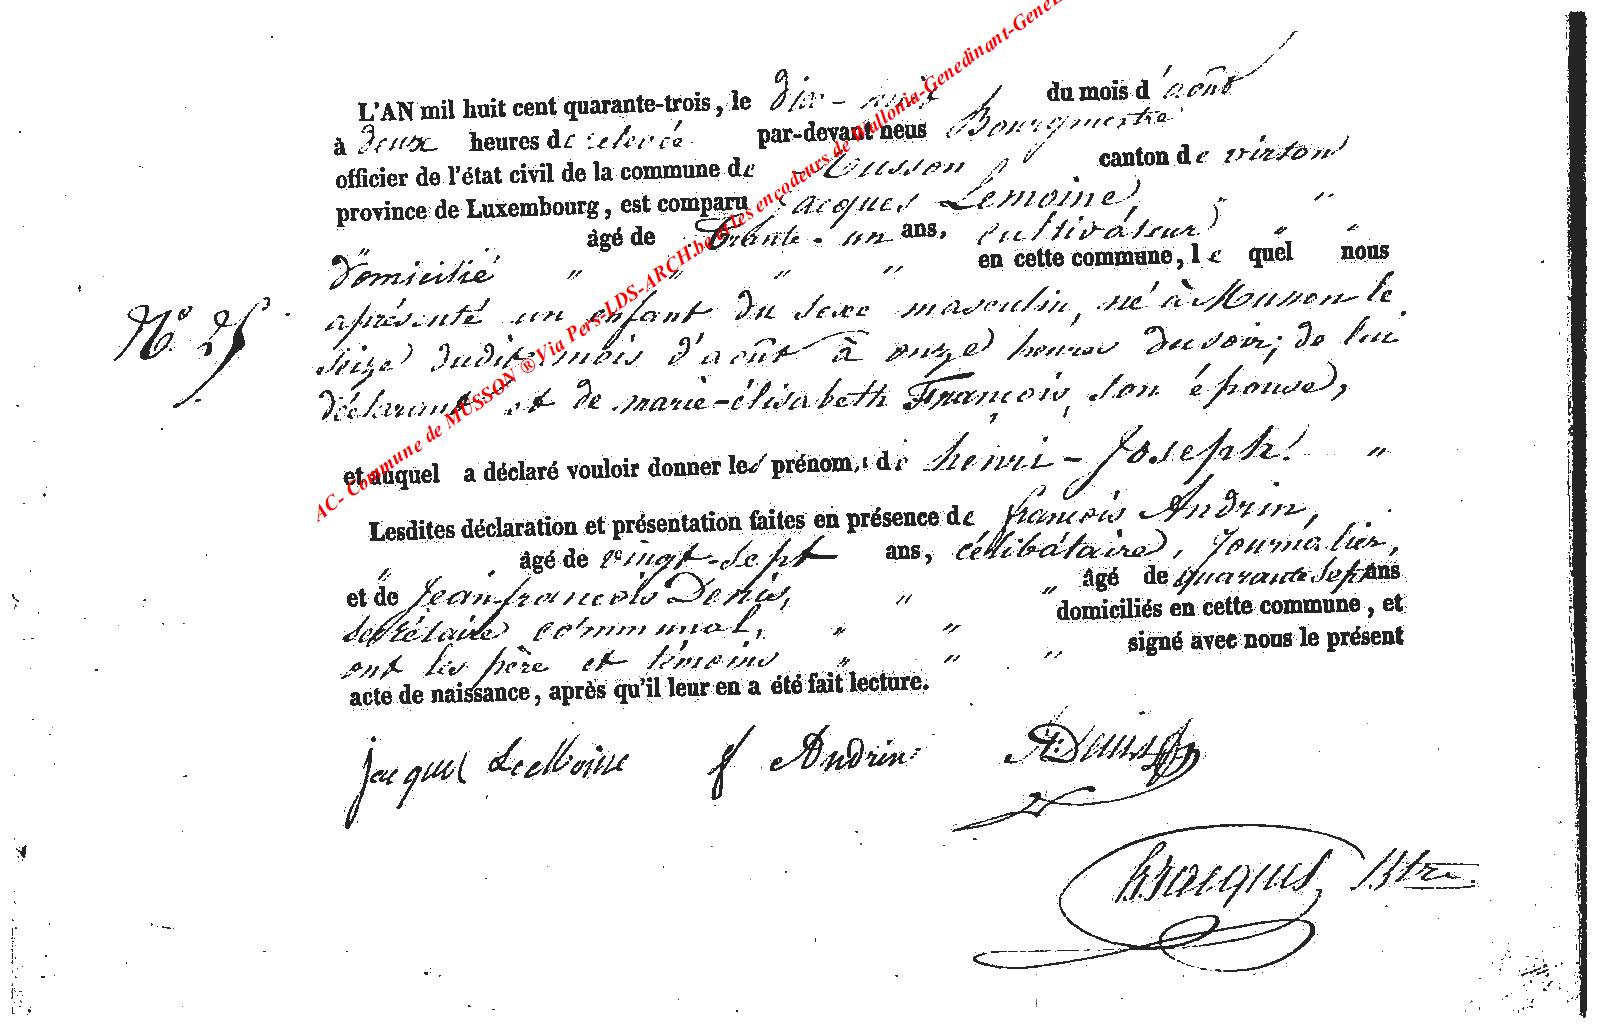 L'AN mil huit cent quarante-trois, le dix-huit du mois d'août
à deux heures de relevée par-devant nous Bourgmestre
officier de l'état civil de la commune de Musson canton de virton
province de Luxembourg, est comparu Jacques Lemoine, "
" âgé de trante-un ans, cultivateur " "
domicilié " " " " en cette commune, le quel nous
aprésenté un enfant du sexe masculin, né à Musson le
seize dudit mois d'août à onze heures du soir; de lui
déclarant et de marie-élisabeth François, son épouse,
et auquel a déclaré vouloir donner les prénoms de henri-Joseph. "
Lesdites déclaration et présentation faites en présence de françois Andrin,
" âgé de vingt-sept ans, célibataire, Journalier,
et de Jean françois Denis, " " âgé de quarante sept ans
secrétaire communal, " " domiciliés en cette commune, et
ont les père et témoins " " " signé avec nous le présent
acte de naissance, après qu'il leur en a été fait lecture.
N° 25
jacques LeMoine f Andrin Denis
Jacques Btre
AC- Commune de MUSSON ® Via Pers-LDS-ARCH.be et les encodeurs de Wallonia-Genedinant-Gene